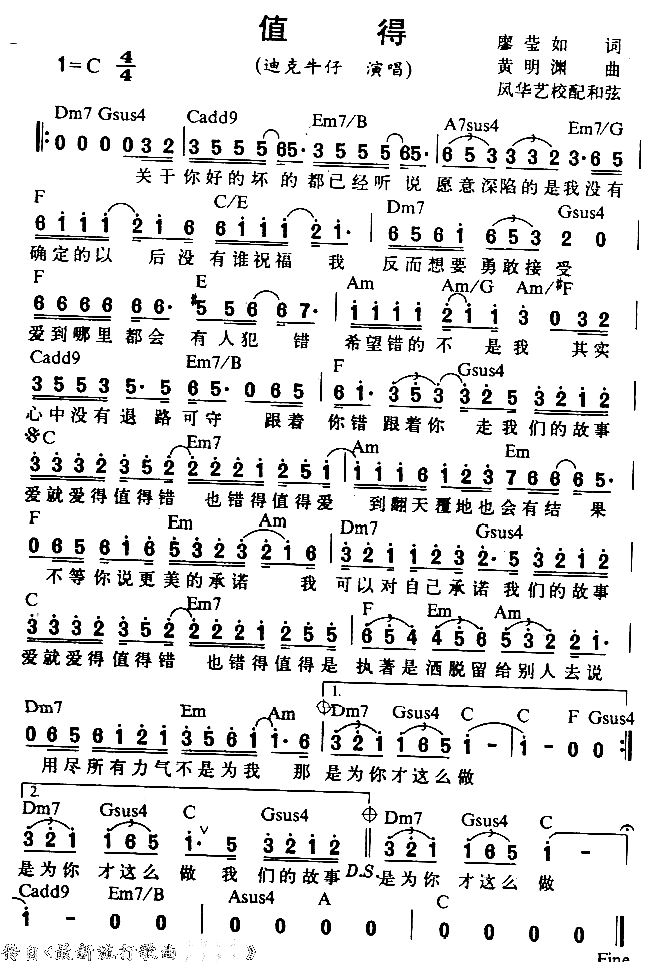 值 得
廖莹如 词
1=C 4/4
(迪克牛仔 演唱)
黄明渊 曲
风华艺校配和弦
Dm7 Gsus4 Cadd9 Em7/B A7sus4 Em7/G
0 0 0 0 3 2 3 5 5 5 5 65· 3 5 5 5 5 65· 6 5 3 3 3 2 3· 6 5
关于你好的坏的都已经听说 愿意深陷的是我没有
F C/E Dm7 Gsus4
6 1 1 1 2 1 6 6 1 1 1 2 1· 6 5 6 1 6 5 3 2 0
确定的以 后没有谁祝福 我 反而想要勇敢接受
F E Am Am/G Am/#F
6 6 6 6 6 6· #5 5 6 6 7· 1 1 1 1 2 1 1 3 0 3 2
爱到哪里都会 有人犯 错 希望错的不 是我 其实
Cadd9 Em7/B F Gsus4
3 5 5 3 5· 5 6 5· 0 6 5 6 1· 3 5 3 3 2 5 3 2 1 2
心中没有退 路可守 跟着 你错跟着你 走我们的故事
C Em7 Am Em
3 3 3 2 3 5 2 2 2 2 1 2 5 1 1 1 1 6 1 2 3 7 6 6 6 5·
爱就爱得值得错 也错得值得爱 到翻天覆地也会有结果
F Em Am Dm7 Gsus4
0 6 5 6 1 6 5 3 2 3 2 1 6 3 2 1 1 2 3 2· 5 3 2 1 2
不等你说更美的承诺 我 可以对自己承诺我们的故事
C Em7 F Em Am
3 3 3 2 3 5 2 2 2 2 1 2 5 3 6 5 4 4 5 6 5 3 2 2 1·
爱就爱得值得错 也错得值得是 执著是洒脱留给别人去说
1.
Dm7 Em Am Dm7 Gsus4 C C F Gsus4
0 6 5 6 1 2 3 5 6 1 1· 6 3 2 1 1 6 5 1 - 1 - 0 0
用尽所有力气不是为我 那 是为你才这么做
2.
Dm7 Gsus4 C Dm7 Gsus4 C
3 2 1 1 6 5 1· 5 3 2 1 2 3 2 1 1 6 5 1 -
是为你 才这么 做 我 们的故事 D.S. 是为你 才这么 做
Cadd9 Em7/B Asus4 A
1 - 0 0 0 0 0 0 0 0 0 0
Fine